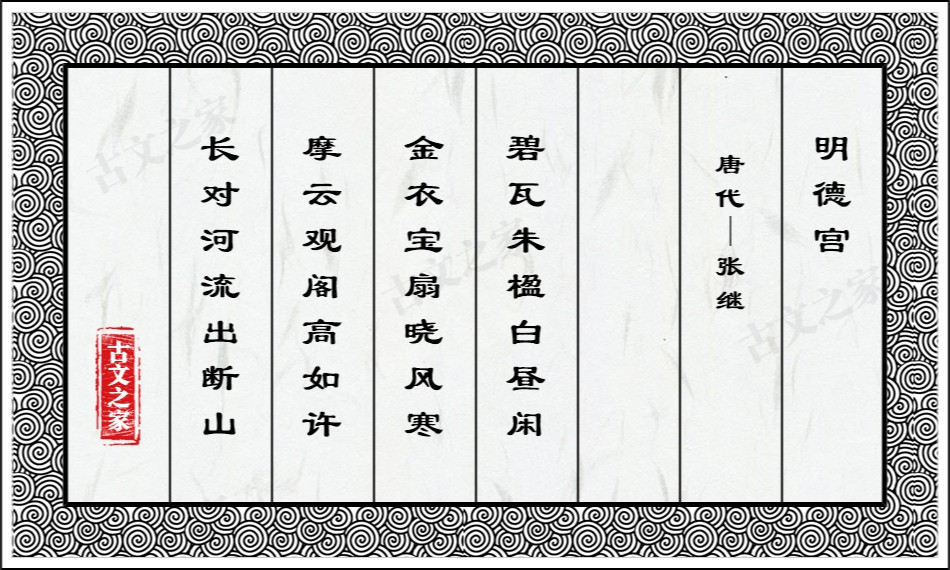 明德宫
唐代—张继
碧瓦朱楹白昼闲
金衣宝扇晓风寒
摩云观阁高如许
长对河流出断山
古文之家
古文之家
古文之家
古文之家